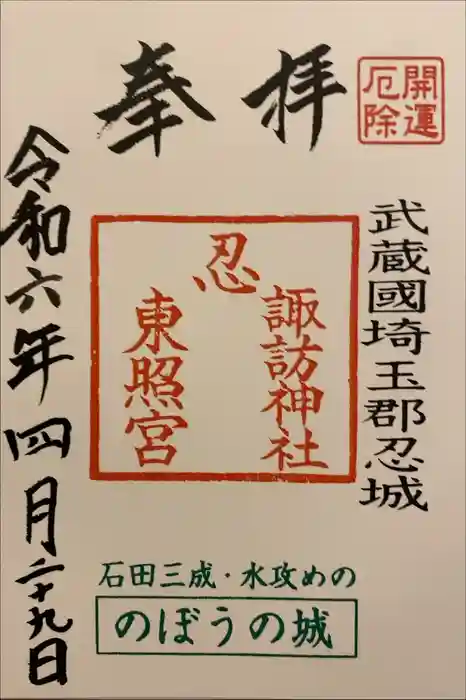 開運
厄除
奉拝
武蔵國埼玉郡忍城
忍
諏訪神社
東照宮
石田三成・水攻めの
のぼうの城
令和六年四月二十九日